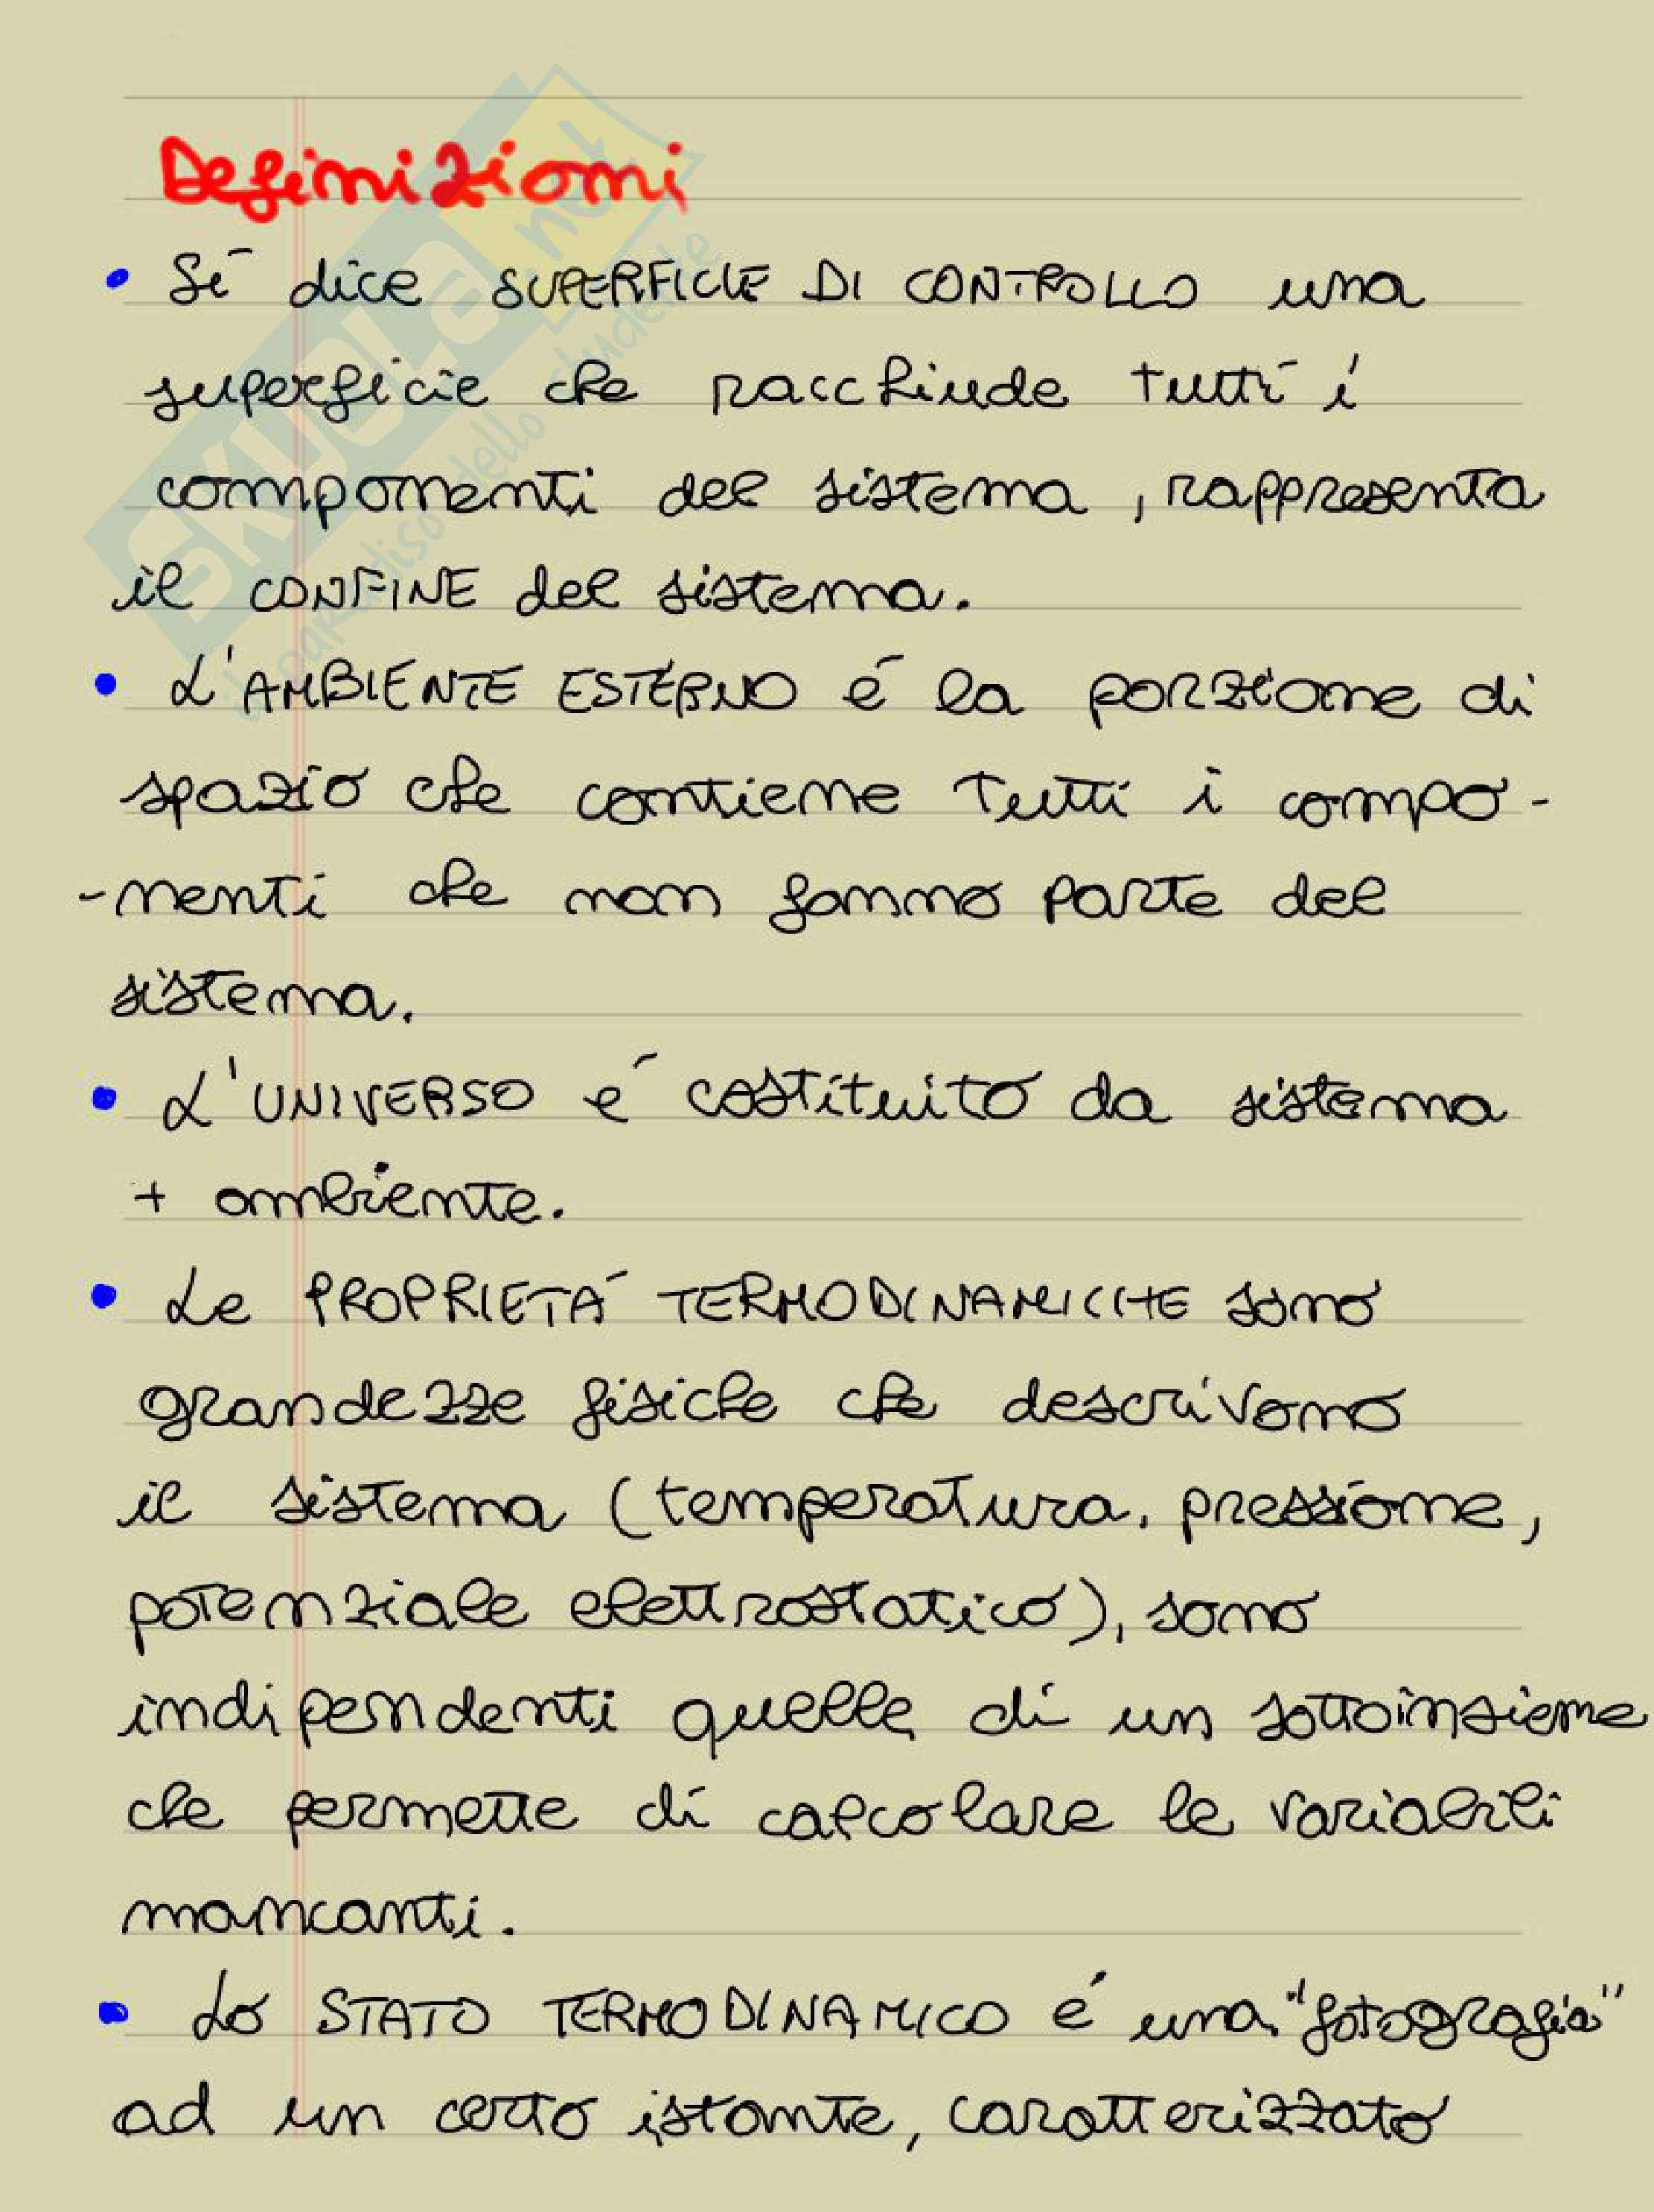 Definizioni
• Si dice SUPERFICIE DI CONTROLLO una
superficie che racchiude tutti i
componenti del sistema, rappresenta
il CONFINE del sistema.
• L'AMBIENTE ESTERNO é la porzione di
spazio che contiene tutti i compo-
-nenti che non fanno parte del
sistema.
• L'UNIVERSO é costituito da sistema
+ ambiente.
• Le PROPRIETÁ TERMODINAMICHE sono
grandezze fisiche che descrivono
il sistema (temperatura, pressione,
potenziale elettrostatico), sono
indipendenti quelle di un sottoinsieme
che permette di calcolare le variabili
mancanti.
• Lo STATO TERMODINAMICO é una "fotografia"
ad un certo istante, caratterizzato
SKUOLA.net
il paradiso dello studente